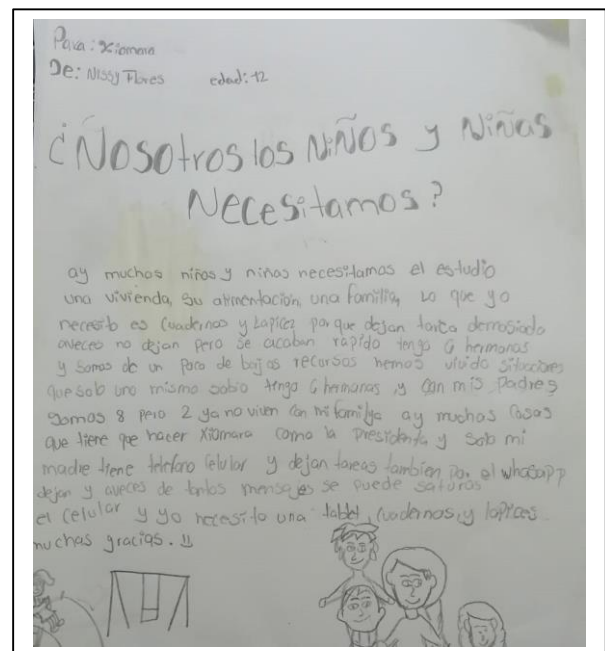 Para: Xiomara
De: Nissy Flores edad: 12
¿Nosotros los Niños y Niñas
Necesitamos?
ay muchos niños y niñas necesitamos el estudio
una vivienda, su alimentación, una familia, Lo que yo
necesito es cuadernos y Lapicez porque dejan tarea demosiado
aveces no dejan pero se acaban rapido tengo 6 hermanas
y somos de un poco de bajos recursos hemos vivido situaciones
que solo uno mismo sabio tengo 6 hermanas y con mis Padres
somos 8 pero 2 ya no viven con mi familya ay muchas Cosas
que tiene que hacer Xiomara como la presidenta y solo mi
madre tiene telefono Celular y dejan tareas tambien por el whatsapp
dejan y aveces de tantos mensajes se puede saturas
el celular y yo necesito una tablet, cuadernos, y lapices
muchas gracias. !!